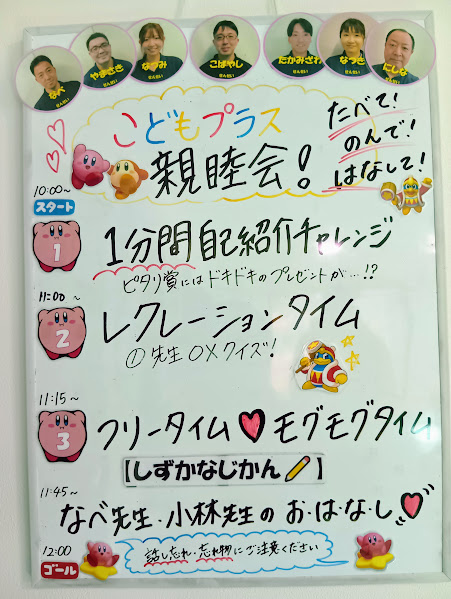 なべ せんせい
やまさき せんせい
なつみ せんせい
こばやし せんせい
たかみざわ せんせい
なつき せんせい
にしな せんせい
こどもプラス
親睦会!
たべて!
のんで!
はなして!
10:00~
スタート
1 1分間自己紹介チャレンジ
ピタリ賞にはドキドキのプレゼントが…!?
11:00~
2 レクレーションタイム
①先生○×クイズ!
11:15~
3 フリータイム♥モグモグタイム
【しずかなじかん】
11:45~
なべ先生・小林先生のお・は・な・し♥
12:00
ゴール
話し忘れ・忘れ物にご注意ください